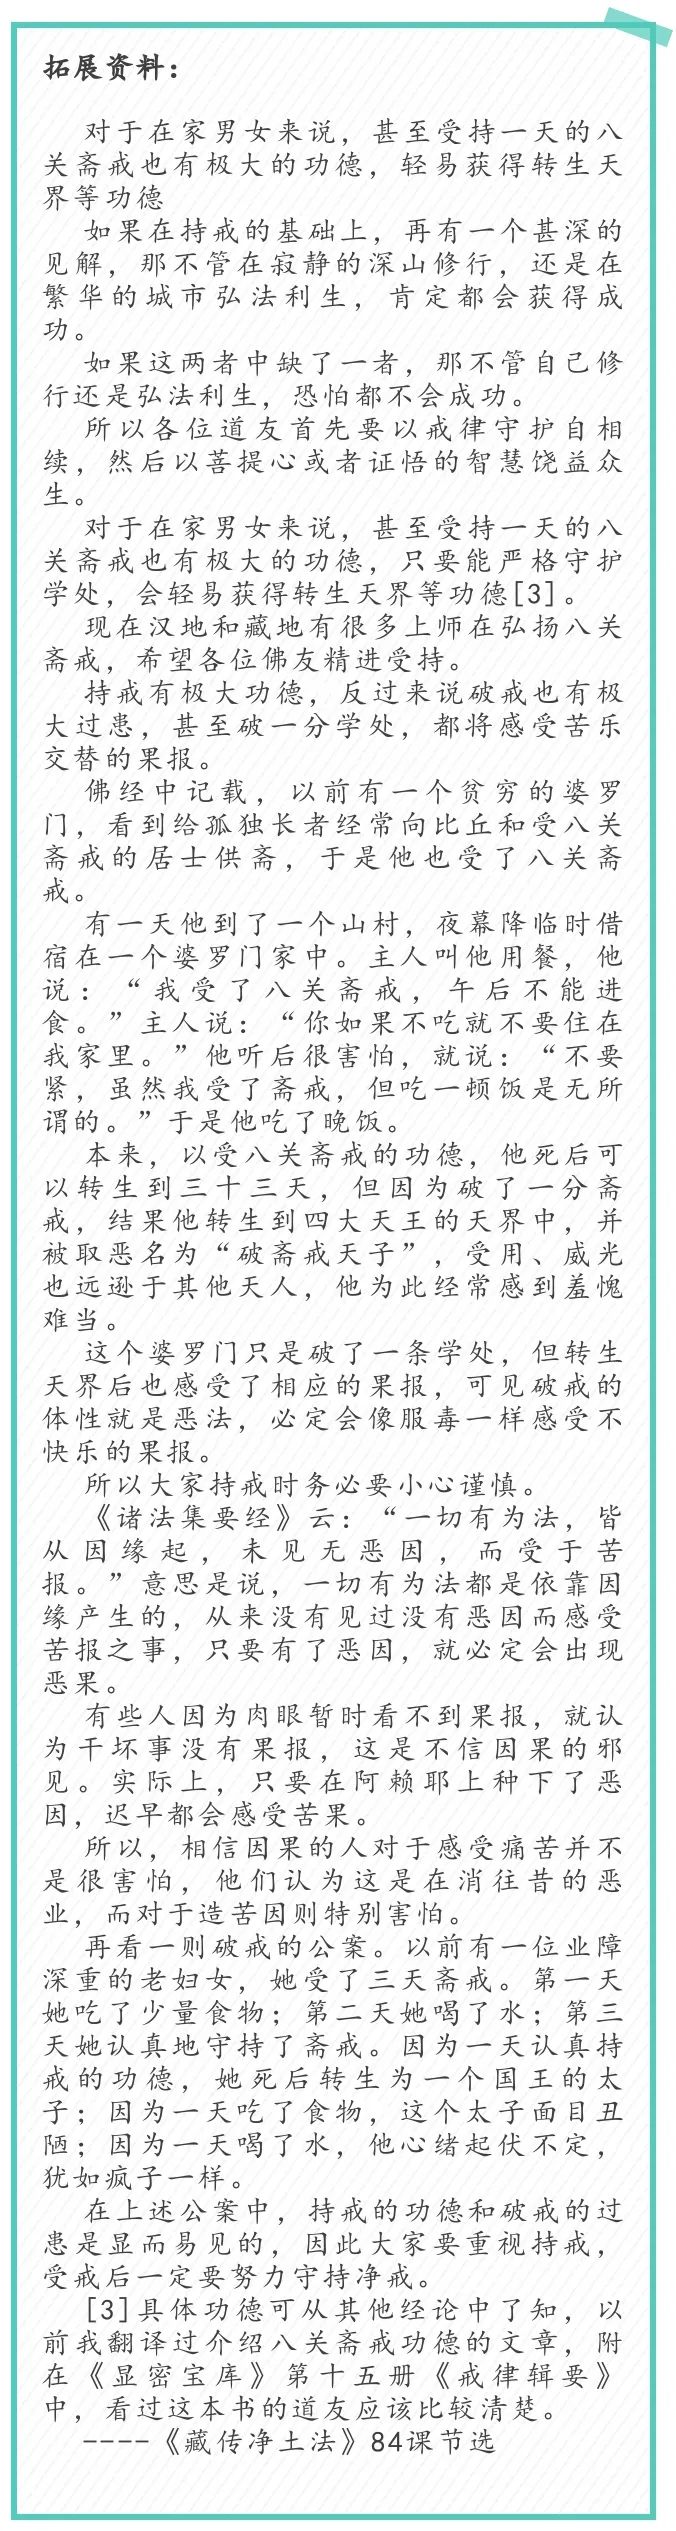 拓展资料：
对于在家男女来说，甚至受持一天的八
关斋戒也有极大的功德，轻易获得转生天
界等功德
如果在持戒的基础上，再有一个甚深的
见解，那不管在寂静的深山修行，还是在
繁华的城市弘法利生，肯定都会获得成
功。
如果这两者中缺了一者，那不管自己修
行还是弘法利生，恐怕都不会成功。
所以各位道友首先要以戒律守护自相
续，然后以菩提心或者证悟的智慧饶益众
生。
对于在家男女来说，甚至受持一天的八
关斋戒也有极大的功德，只要能严格守护
学处，会轻易获得转生天界等功德[3]。
现在汉地和藏地有很多上师在弘扬八关
斋戒，希望各位佛友精进受持。
持戒有极大功德，反过来说破戒也有极
大过患，甚至破一分学处，都将感受苦乐
交替的果报。
佛经中记载，以前有一个贫穷的婆罗
门，看到给孤独长者经常向比丘和受八关
斋戒的居士供斋，于是他也受了八关斋
戒。
有一天他到了一个山村，夜幕降临时借
宿在一个婆罗门家中。主人叫他用餐，他
说：“我受了八关斋戒，午后不能进
食。”主人说：“你如果不吃就不要住在
我家里。”他听后很害怕，就说：“不要
紧，虽然我受了斋戒，但吃一顿饭是无所
谓的。”于是他吃了晚饭。
本来，以受八关斋戒的功德，他死后可
以转生到三十三天，但因为破了一分斋
戒，结果他转生到四大天王的天界中，并
被取恶名为“破斋戒天子”，受用、威光
也远逊于其他天人，他为此经常感到羞愧
难当。
这个婆罗门只是破了一条学处，但转生
天界后也感受了相应的果报，可见破戒的
体性就是恶法，必定会像服毒一样感受不
快乐的果报。
所以大家持戒时务必要小心谨慎。
《诸法集要经》云：“一切有为法，皆
从因缘起，未见无恶因，而受于苦
报。”意思是说，一切有为法都是依靠因
缘产生的，从来没有见过没有恶因而感受
苦报之事，只要有了恶因，就必定会出现
恶果。
有些人因为肉眼暂时看不到果报，就认
为干坏事没有果报，这是不信因果的邪
见。实际上，只要在阿赖耶上种下了恶
因，迟早都会感受苦果。
所以，相信因果的人对于感受痛苦并不
是很害怕，他们认为这是在消往昔的恶
业，而对于造苦因则特别害怕。
再看一则破戒的公案。以前有一位业障
深重的老妇女，她受了三天斋戒。第一天
她吃了少量食物；第二天她喝了水；第三
天她认真地守持了斋戒。因为一天认真持
戒的功德，她死后转生为一个国王的太
子；因为一天吃了食物，这个太子面目丑
陋；因为一天喝了水，他心绪起伏不定，
犹如疯子一样。
在上述公案中，持戒的功德和破戒的过
患是显而易见的，因此大家要重视持戒，
受戒后一定要努力守持净戒。
[3]具体功德可从其他经论中了知，以
前我翻译过介绍八关斋戒功德的文章，附
在《显密宝库》第十五册《戒律辑要》
中，看过这本书的道友应该比较清楚。
----《藏传净土法》84课节选